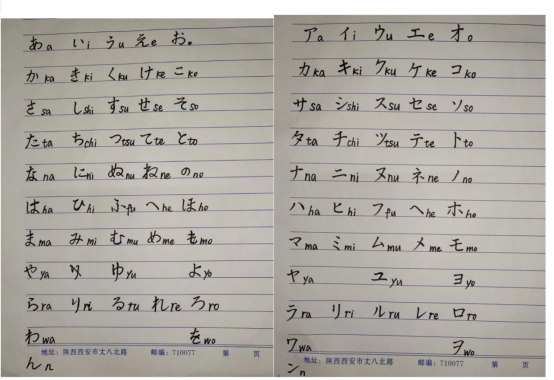 あa いi うu えe おo
かka きki くku けke こko
さsa しshi すsu せse そso
たta ちchi つtsu てte とto
なna にni ぬnu ねne のno
はha ひhi ふfu へhe ほho
まma みmi むmu めme もmo
やya ゆyu よyo
らra りri るru れre ろro
わwa をwo
地址：陕西西安市丈八北路 邮编：710077 第 页
んn
アa イi ウu エe オo
カka キki クku ケke コko
サsa シshi スsu セse ソso
タta チchi ツtsu テte トto
ナna ニni ヌnu ネne ノno
ハha ヒhi フfu へhe ホho
マma ミmi ムmu メme モmo
ヤya ユyu ヨyo
ラra リri ルru レre ロro
ワwa ヲwo
地址：陕西西安市丈八北路 邮编：710077 第 页
ンn